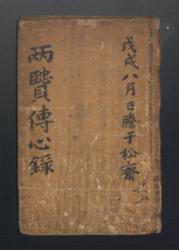 戊戌八月日勝于松齋
兩賢傳心錄